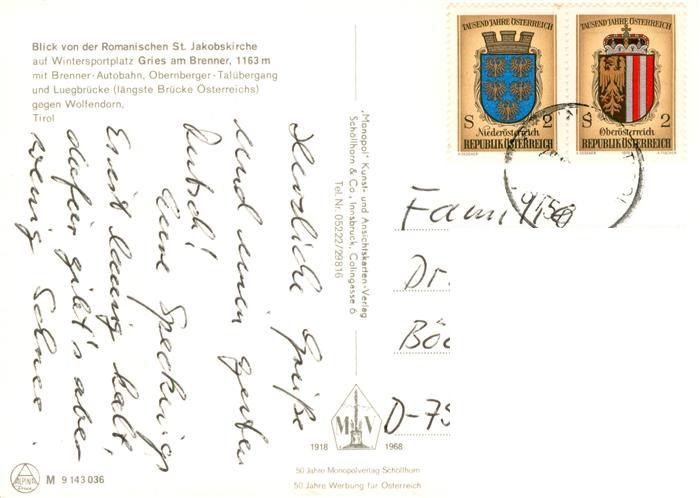 Blick von der Romanischen St. Jakobskirche
auf Wintersportplatz Gries am Brenner, 1163 m
mit Brenner-Autobahn, Obernberger-Talübergang
und Luegbrücke (längste Brücke Österreichs)
gegen Wolfendorn,
Tirol
TAUSEND JAHRE ÖSTERREICH
S 2
Niederösterreich
REPUBLIK ÖSTERREICH
TAUSEND JAHRE ÖSTERREICH
S 2
Oberösterreich
REPUBLIK ÖSTERREICH
"Monopol" Kunst- und Ansichtskarten-Verlag
Schöllhorn & Co., Innsbruck, Colingasse 6
Tel. Nr. 05222/29816
Herzliche Grüße
und einen guten
Rutsch!
Eure
Es ist kalt,
dafür gibt's aber
wenig Schnee.
Familie
Dr.
Böc
D-75
MV
1918 1968
50 Jahre Monopolverlag Schöllhorn
50 Jahre Werbung für Österreich
ALPINA
M 9 143 036